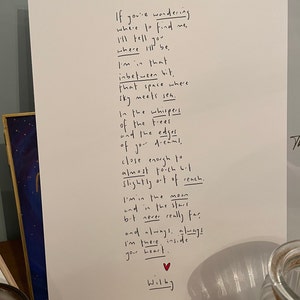 If you're wondering
where to find me,
I'll tell you
where I'll be.
I'm in that
inbetween bit,
that space where
sky meets sea.
In the whispers
of the trees
and the edges
of your dreams,
close enough to
almost touch but
slightly out of reach.
I'm in the moon
and in the stars
but never really far,
and always, always
I'm there inside
your heart.